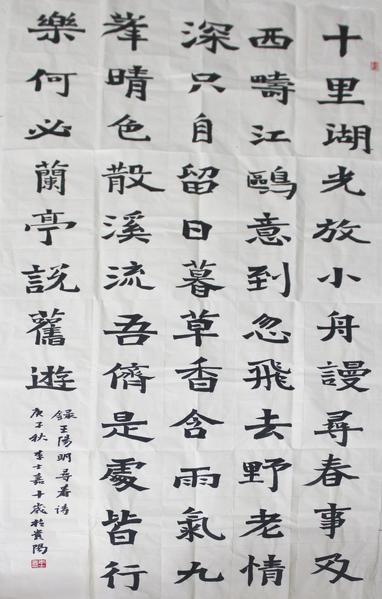 十里湖光放小舟謾尋春事及
西疇江鷗意到忽飛去野老情
深只自留日暮草香含雨氣九
峯晴色散溪流吾儕是處皆行
樂何必蘭亭說舊遊
錄王陽明尋春詩
庚子秋李士嘉歲於貴陽